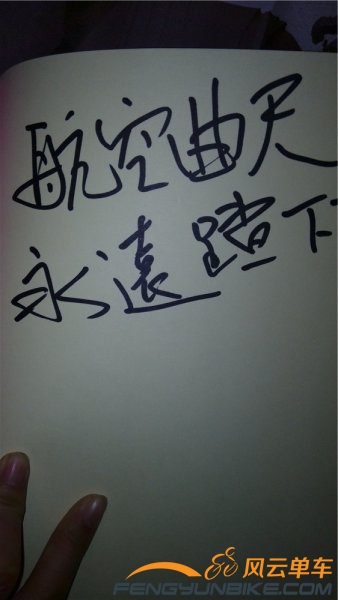 航空曲尺
永遠踏下
风云单车
FENGYUNBIKE.COM